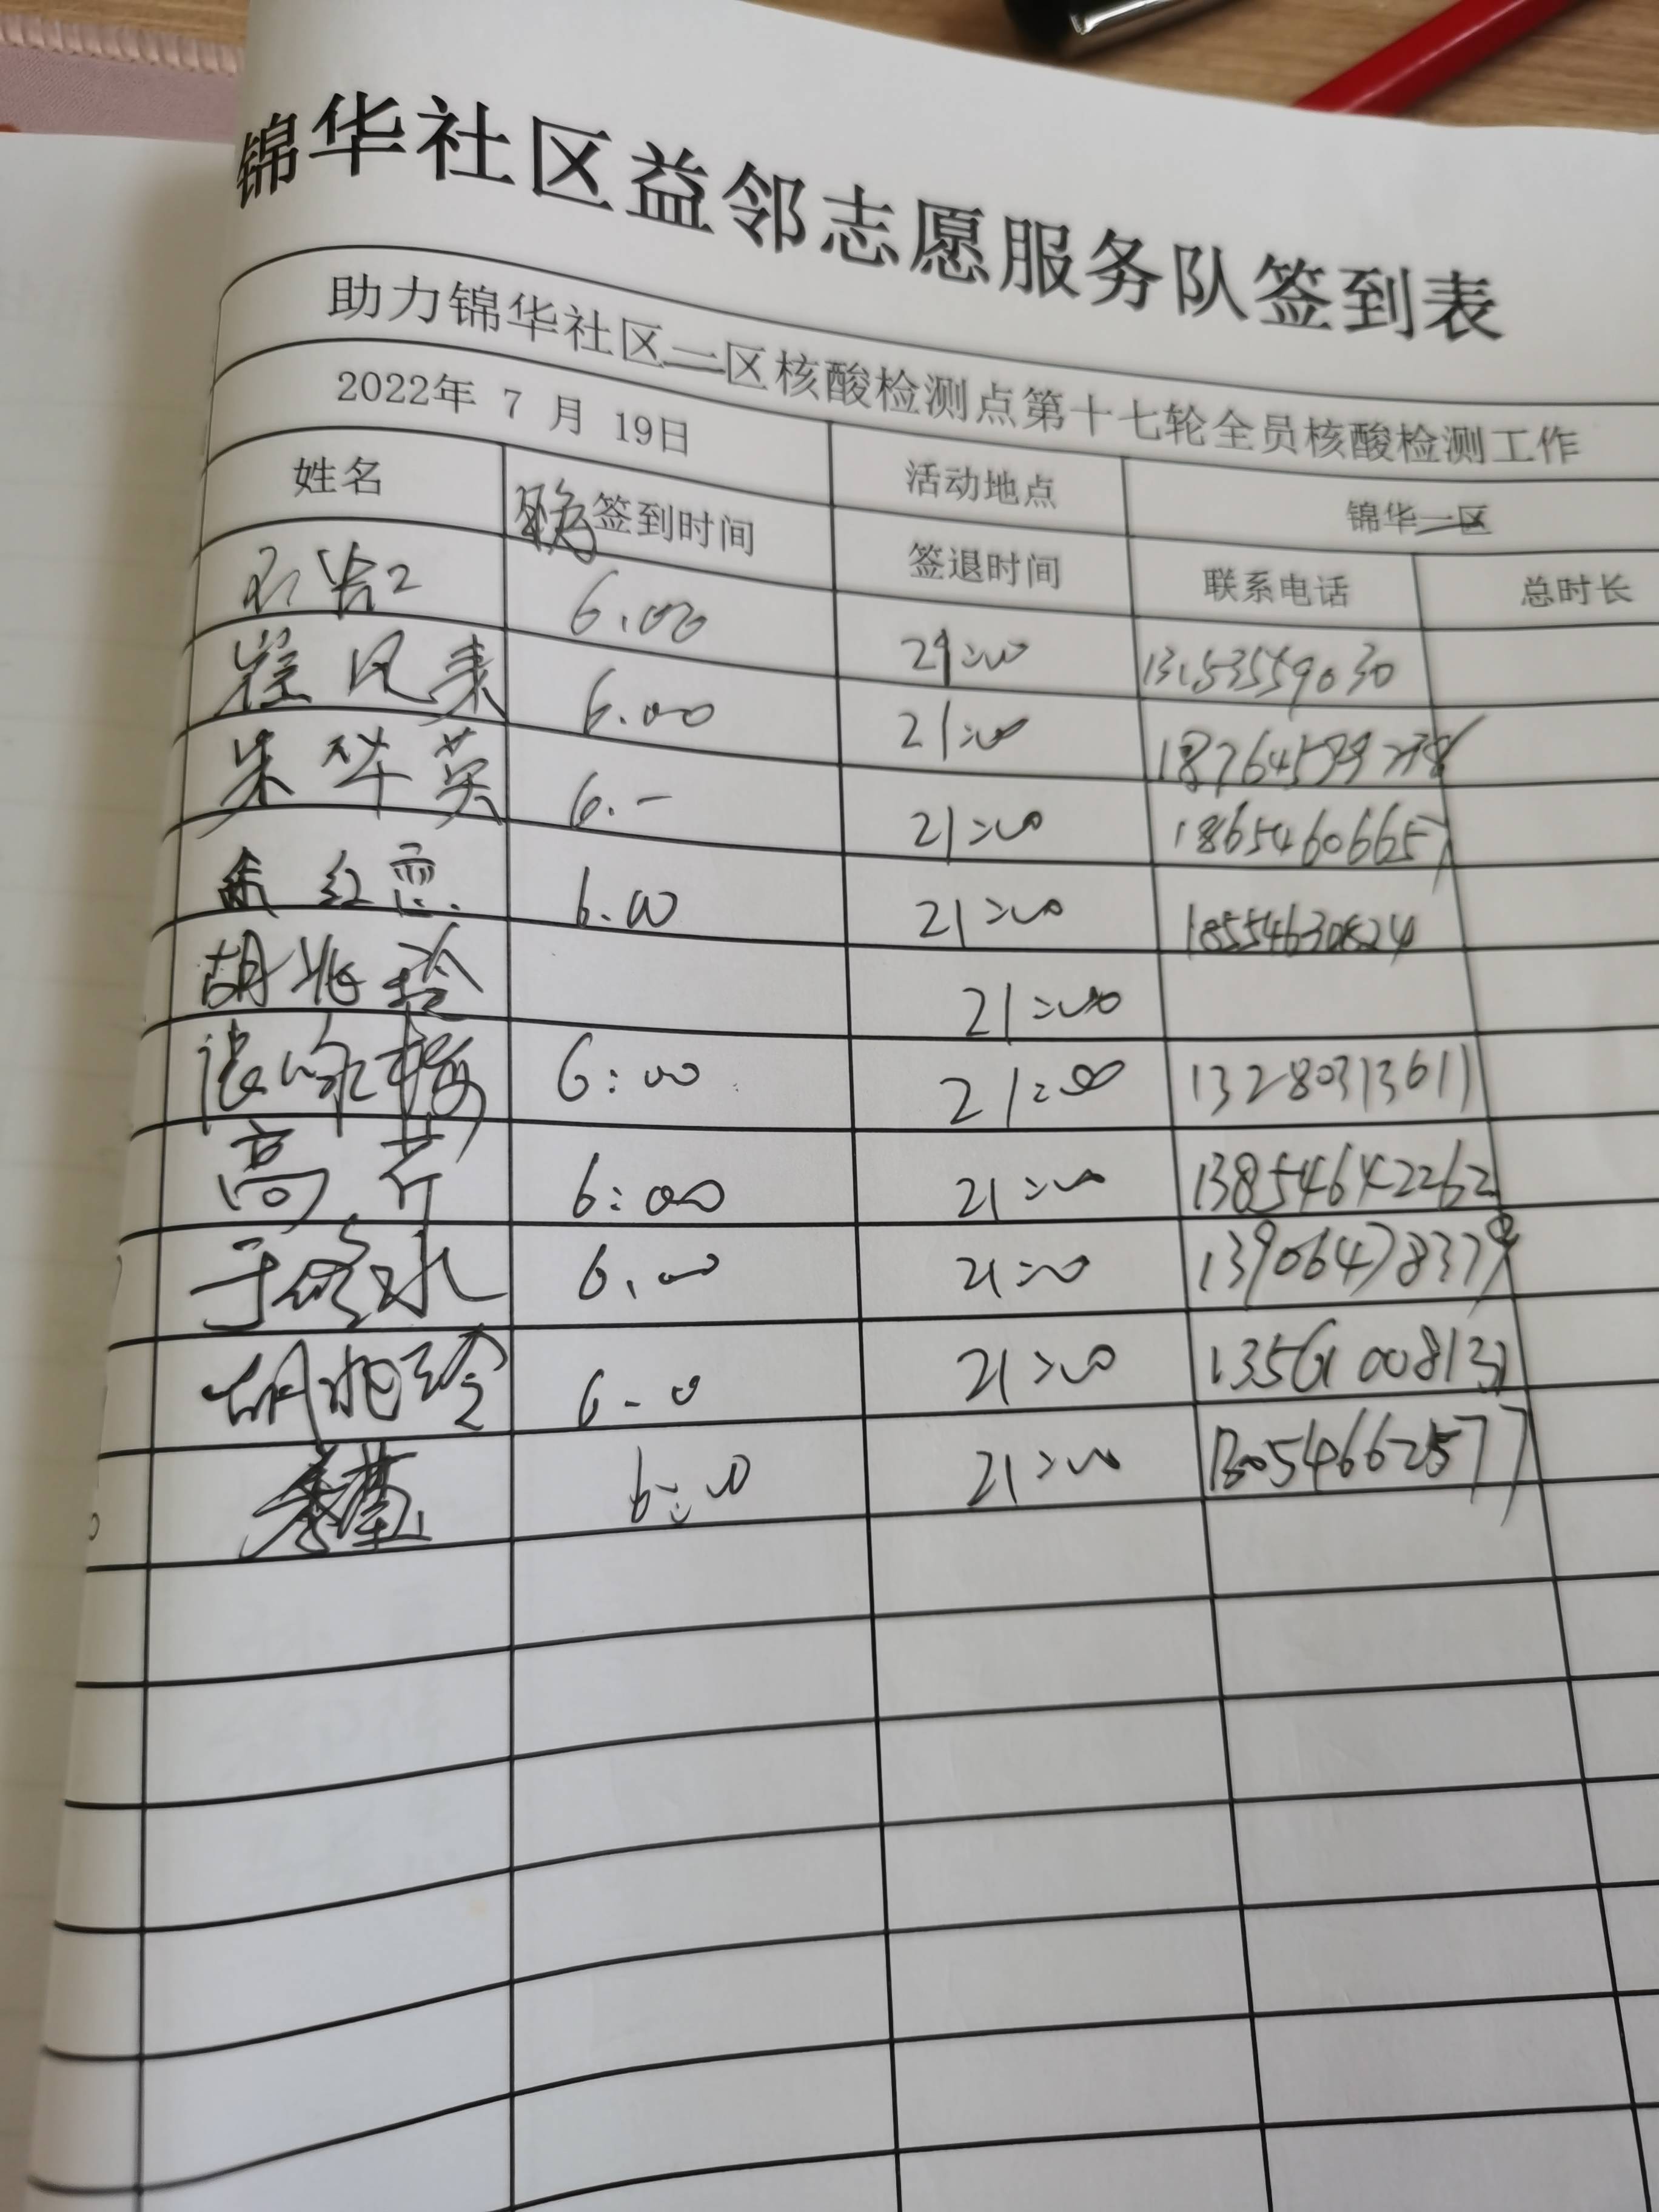 锦华社区益邻志愿服务队签到表
助力锦华社区二区核酸检测点第十七轮全员核酸检测工作
2022年 7 月 19日 活动地点 锦华一区
姓名 签到时间 签退时间 联系电话 总时长
6.00 21:00 13153559030
崔风英 6.00 21:00
朱华英 6.- 21:00 18654606657
红霞 6.00 21:00 18554630824
胡兆玲 21:00
张咏梅 6:00 21:00 13280313611
高芹 6:00 21:00 13854642262
于 水 6.00 21:00 13906478379
胡兆玲 6-0 21:00 13561008131
6:00 21:00 13054662577